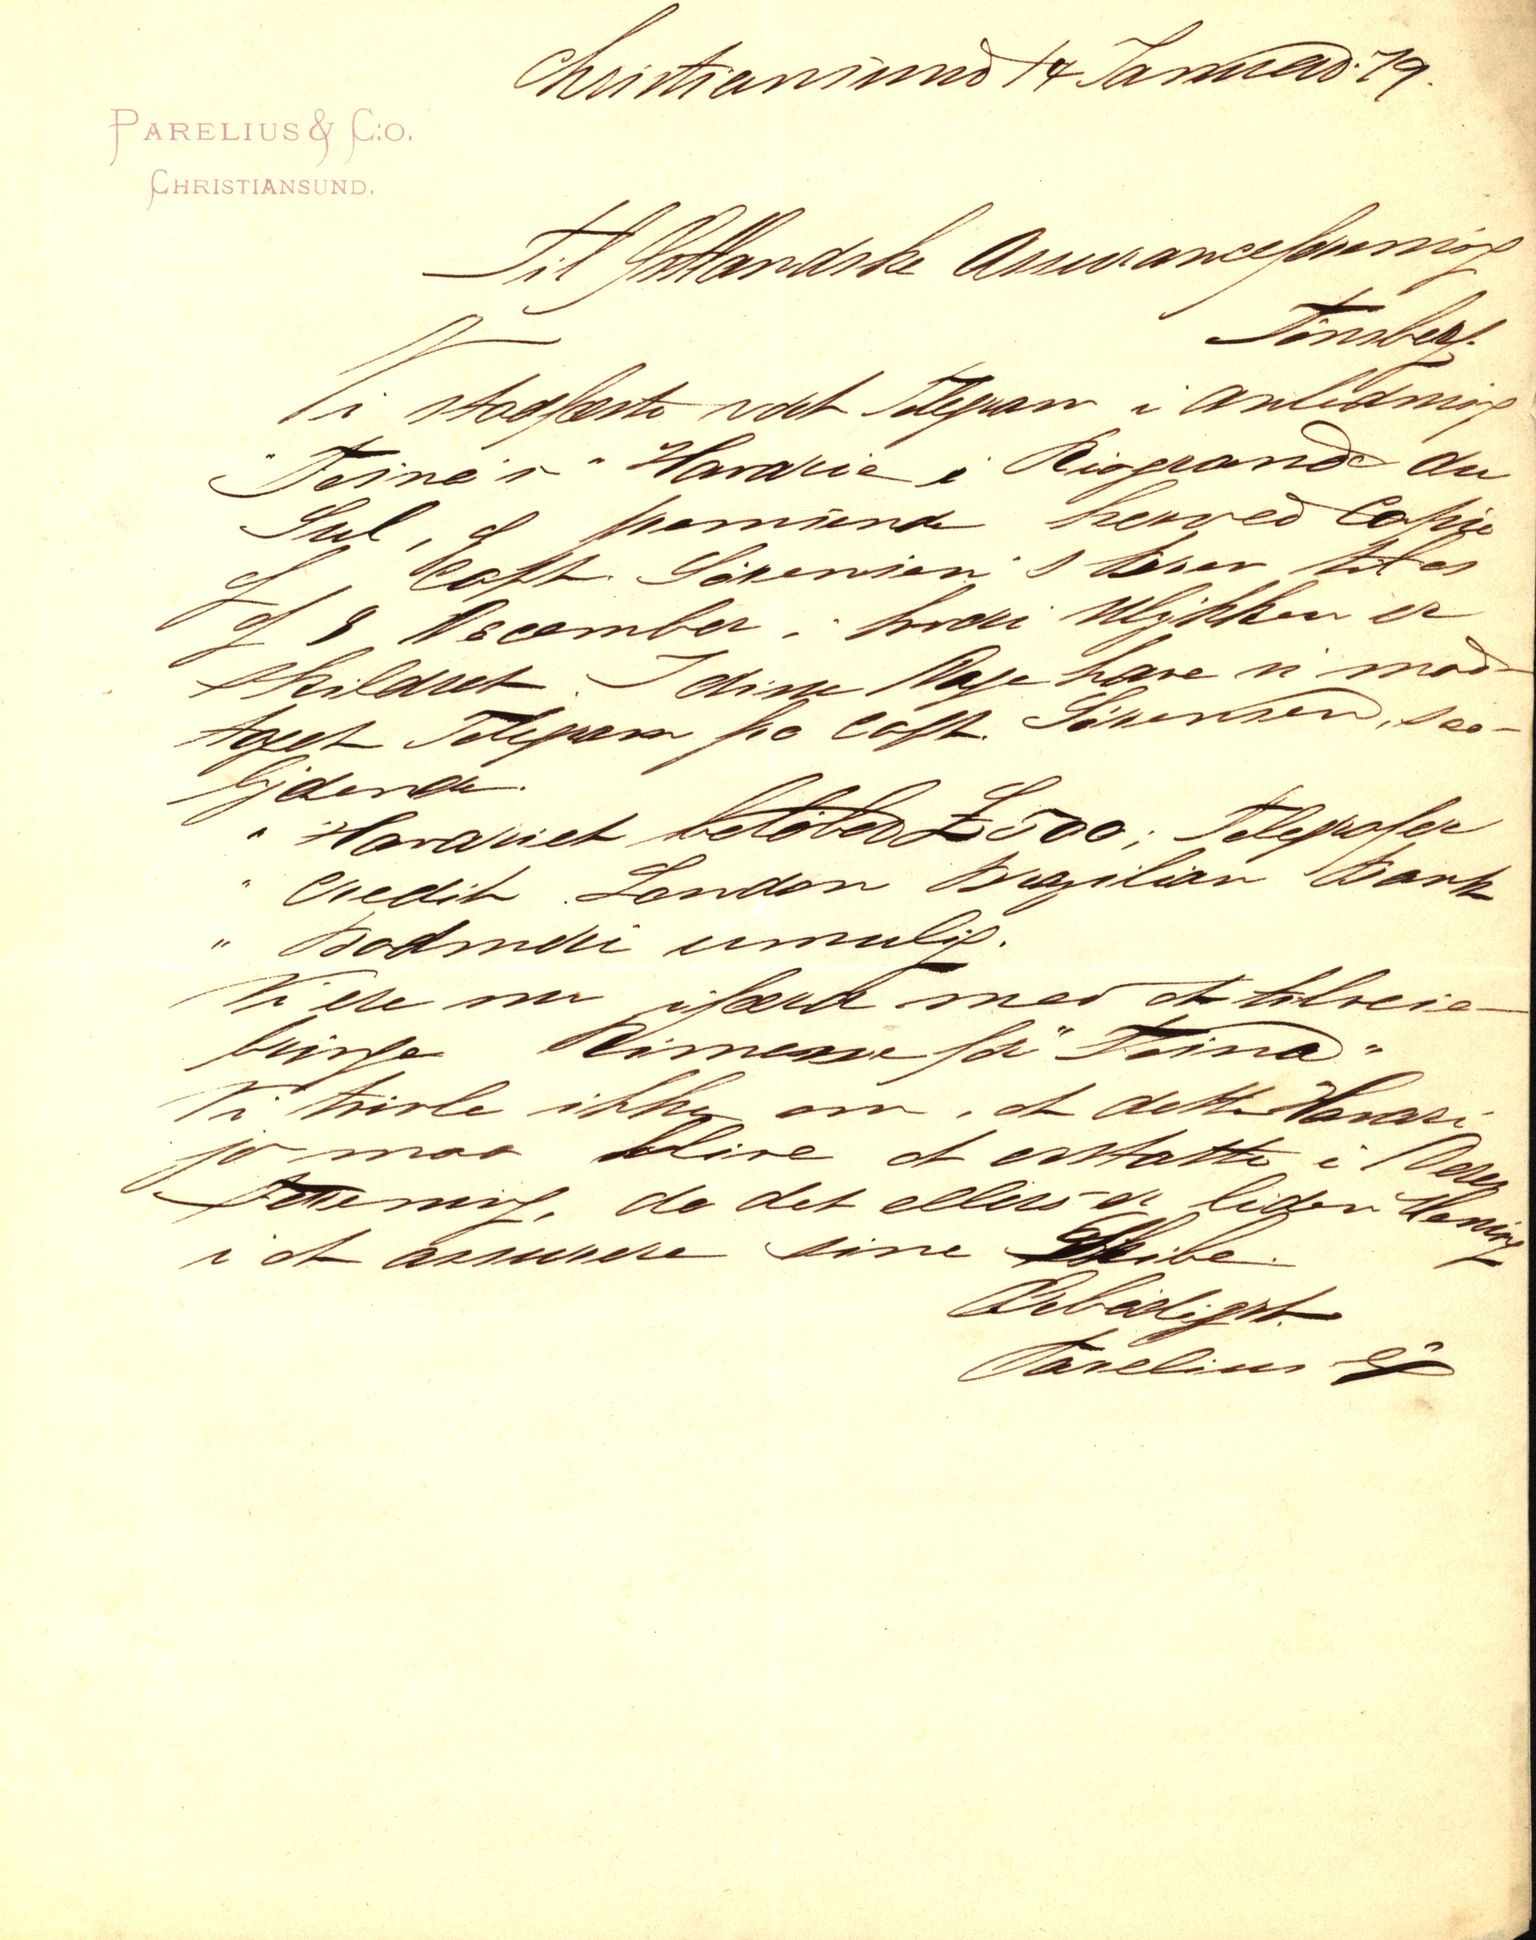 Christiansund 14 Januar 79.
PARELIUS & C:O.
CHRISTIANSUND.
Til Østlandske Assuranceforening
Tønsberg.
Vi stadfæste vort Telegram i anledning
"Teine's" Havarie i Riogrande du
Sul, og fremsende herved Copie
af Capt. Sørensen's brev til os
af 8 December, i hvori Ulykken er
skildret. I disse Dage have vi mod-
taget Telegram fra Capt. Sørensen, saa-
lydende.
" Havariet beløber £500; Telegrafer
" Credit London Brazilian Bank
" Bodmeri umulig.
Vi ere nu ifærd med at tilveie-
bringe Rimesse for "Teina"
Vi tvivle ikke om, at dette Havari
jo maa blive at erstatte i Deres
Forening, da det ellers er liden Mening
i at assurere sine Skibe.
Ærbødigst
Parelius & Co